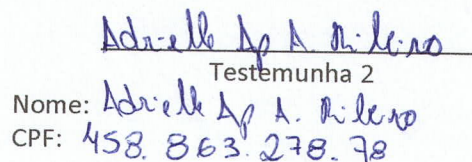 Adrielle Ap A. Ribeiro
Testemunha 2
Nome: Adrielle Ap A. Ribeiro
CPF: 458.863.278.78